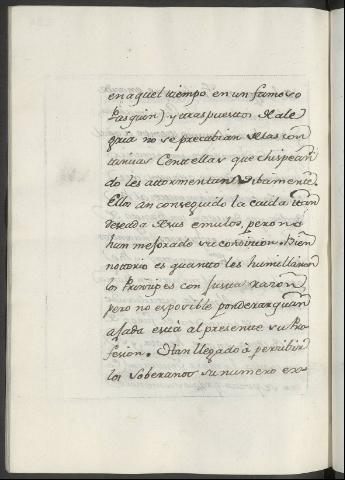 en aquel tiempo en un famoso
Pasquin) y traspuestos de ale
gria no se precabian de las con
tinuas Centellas que chispean
do les attormentan vibamente.
Ellos an conseguido la caida tan
deseada de sus emulos, pero no
han mejorado su condicion. Bien
notorio es quanto les humillaron
los Principes con justa razon,
pero no es posible ponderar quan
ajada està al presente su Pro
fesion. Han llegado à percibir
los Soberanos su numero ex-